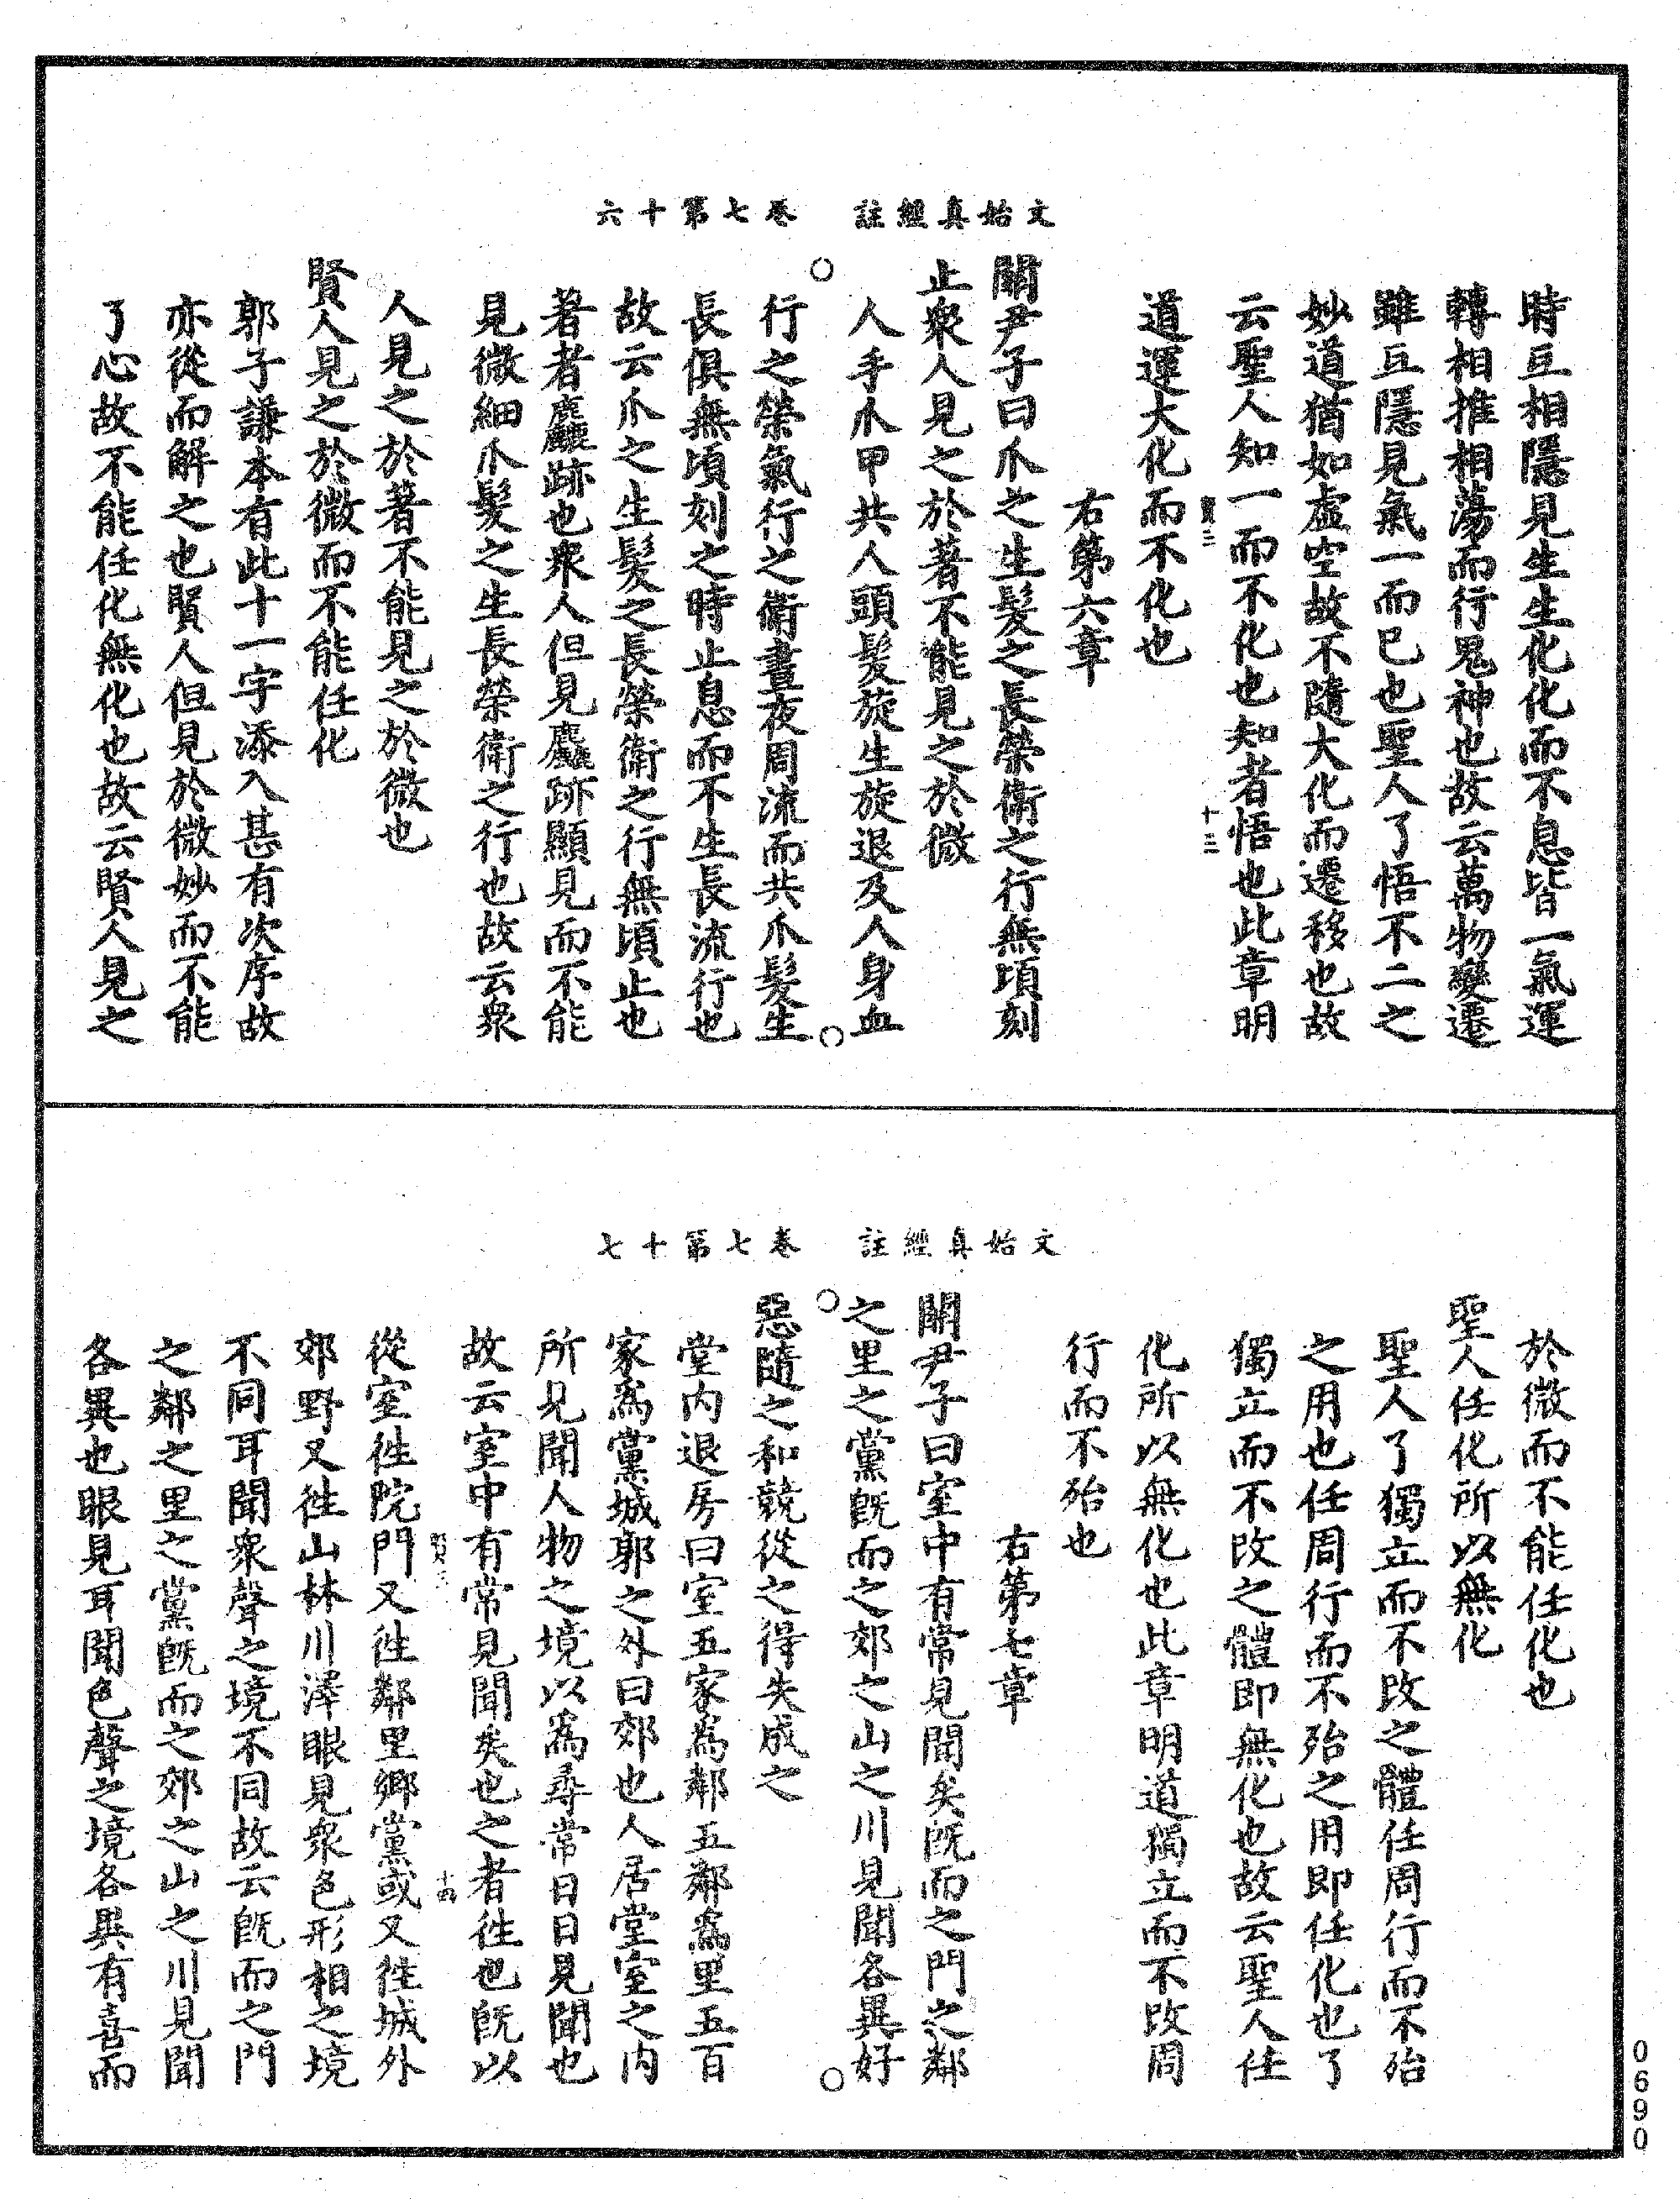 文始真經註　卷七第十六
時亙相隱見生生化化而不息皆一氣運
轉相推相蕩而行鬼神也故云萬物變遷
雖亙隱見氣一而已也聖人了悟不二之
妙道猶如虛空故不隨大化而遷移也故
云聖人知一而不化也知者悟也此章明
賢三　十三
道運大化而不化也
右第六章
關尹子曰爪之生髮之長榮衛之行無頃刻
止衆人見之於著不能見之於微
人手爪甲共人頭髮旋生旋退及人身血
行之榮氣行之衛晝夜周流而共爪髮生
長俱無頃刻之時止息而不生長流行也
故云爪之生髮之長榮衛之行無頃止也
著者麤跡也衆人但見麤跡顯見而不能
見微細爪髮之生長榮衛之行也故云衆
人見之於著不能見之於微也
賢人見之於微而不能任化
郭子謙本有此十一字添入甚有次序故
亦從而解之也賢人但見於微妙而不能
了心故不能任化無化也故云賢人見之
文始真經註　卷七第十七
於微而不能任化也
聖人任化所以無化
聖人了獨立而不改之體任周行而不殆
之用也任周行而不殆之用即任化也了
獨立而不改之體即無化也故云聖人任
化所以無化也此章明道獨立而不改周
行而不殆也
右第七章
關尹子曰室中有常見聞矣旣而之門之鄰
之里之黨旣而之郊之山之川見聞各異好
惡隨之和競從之得失成之
堂内退房曰室五家爲鄰五鄰爲里五百
家爲黨城郭之外曰郊也人居堂室之内
所見聞人物之境以爲尋常日日見聞也
故云室中有常見聞矣也之者往也旣以
賢三　十四
從室往院門又往鄰里鄉黨或又往城外
郊野又往山林川澤眼見衆色形相之境
不同耳聞衆聲之境不同故云旣而之門
之鄰之里之黨旣而之郊之山之川見聞
各異也眼見耳聞色聲之境各異有喜而
0690